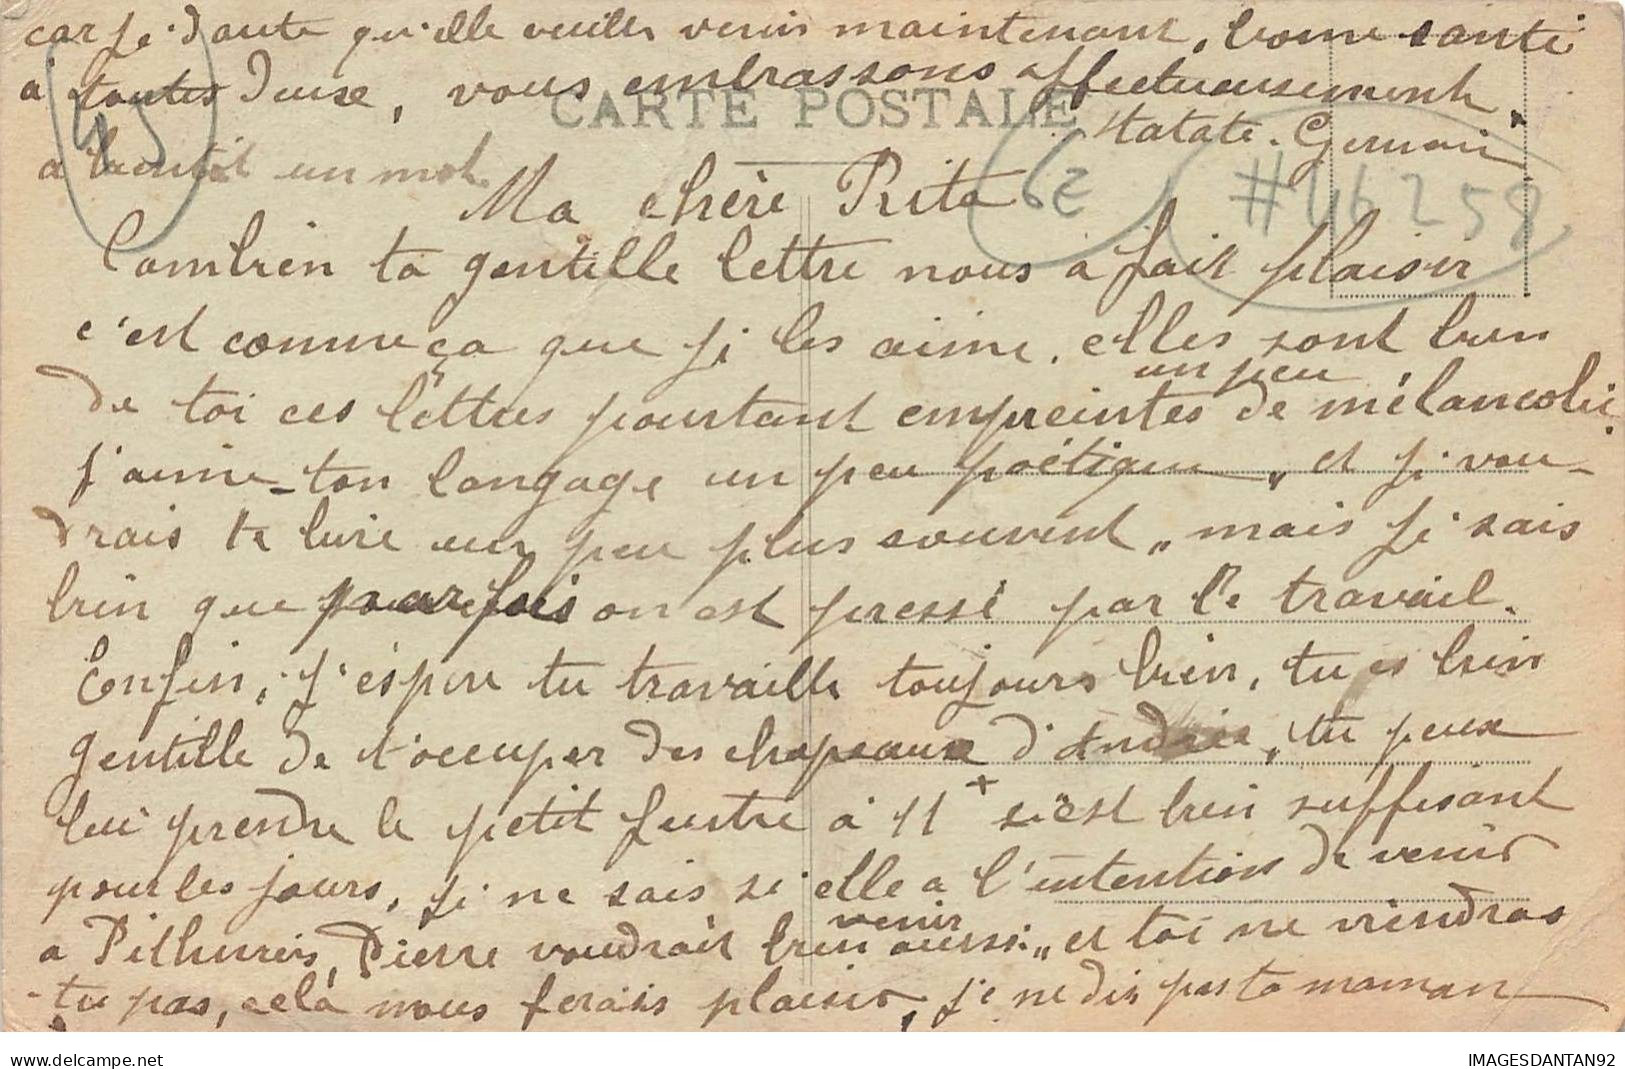 car je doute qu'elle veuille venir maintenant, bonne santé
à toutes deux, vous embrassons affectueusement.
CARTE POSTALE
tatate. Germain
à bientôt un mot.
45
62
#46258
Ma chère Rita
Combien ta gentille lettre nous a fait plaisir
c'est comme ça que je les aime. elles sont bien
de toi ces lettres pourtant empreintes un peu de mélancolie.
J'aime ton langage un peu poétique „ et je vou-
drais te lire un peu plus souvent „ mais je sais
bien que parfois on est pressé par le travail.
Enfin, j'éspère tu travaille toujours bien, tu es bien
gentille de t'occuper des chapeaux d'Andrée, tu peux
lui prendre le petit feutre à 11 + s'est bien suffisant
pour les jours, je ne sais si elle a l'intention de venir
a Pithiviers, Pierre voudrait bien venir aussi „ et toi ne viendras
-tu pas, celà nous ferais plaisir, je ne dis pas ta maman
delcampe.net
IMAGESDANTAN92